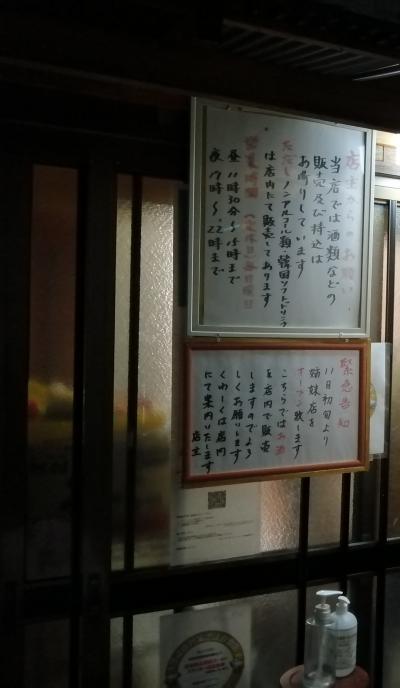 店主からのお願い
当店では酒類などの
販売及び持込は
お断りしています
ただしノンアルコール類・韓国ソフトドリンク
は店内にて販売してあります
営業時間
昼11時30分〜15時まで
夜17時〜22時まで
緊急告知
11日初旬より
姉妹店を
オープン致します
こちらではお酒
を店内で販売
しますのでよろ
しくお願いします
くわしくは店内
にて案内いたします
店主